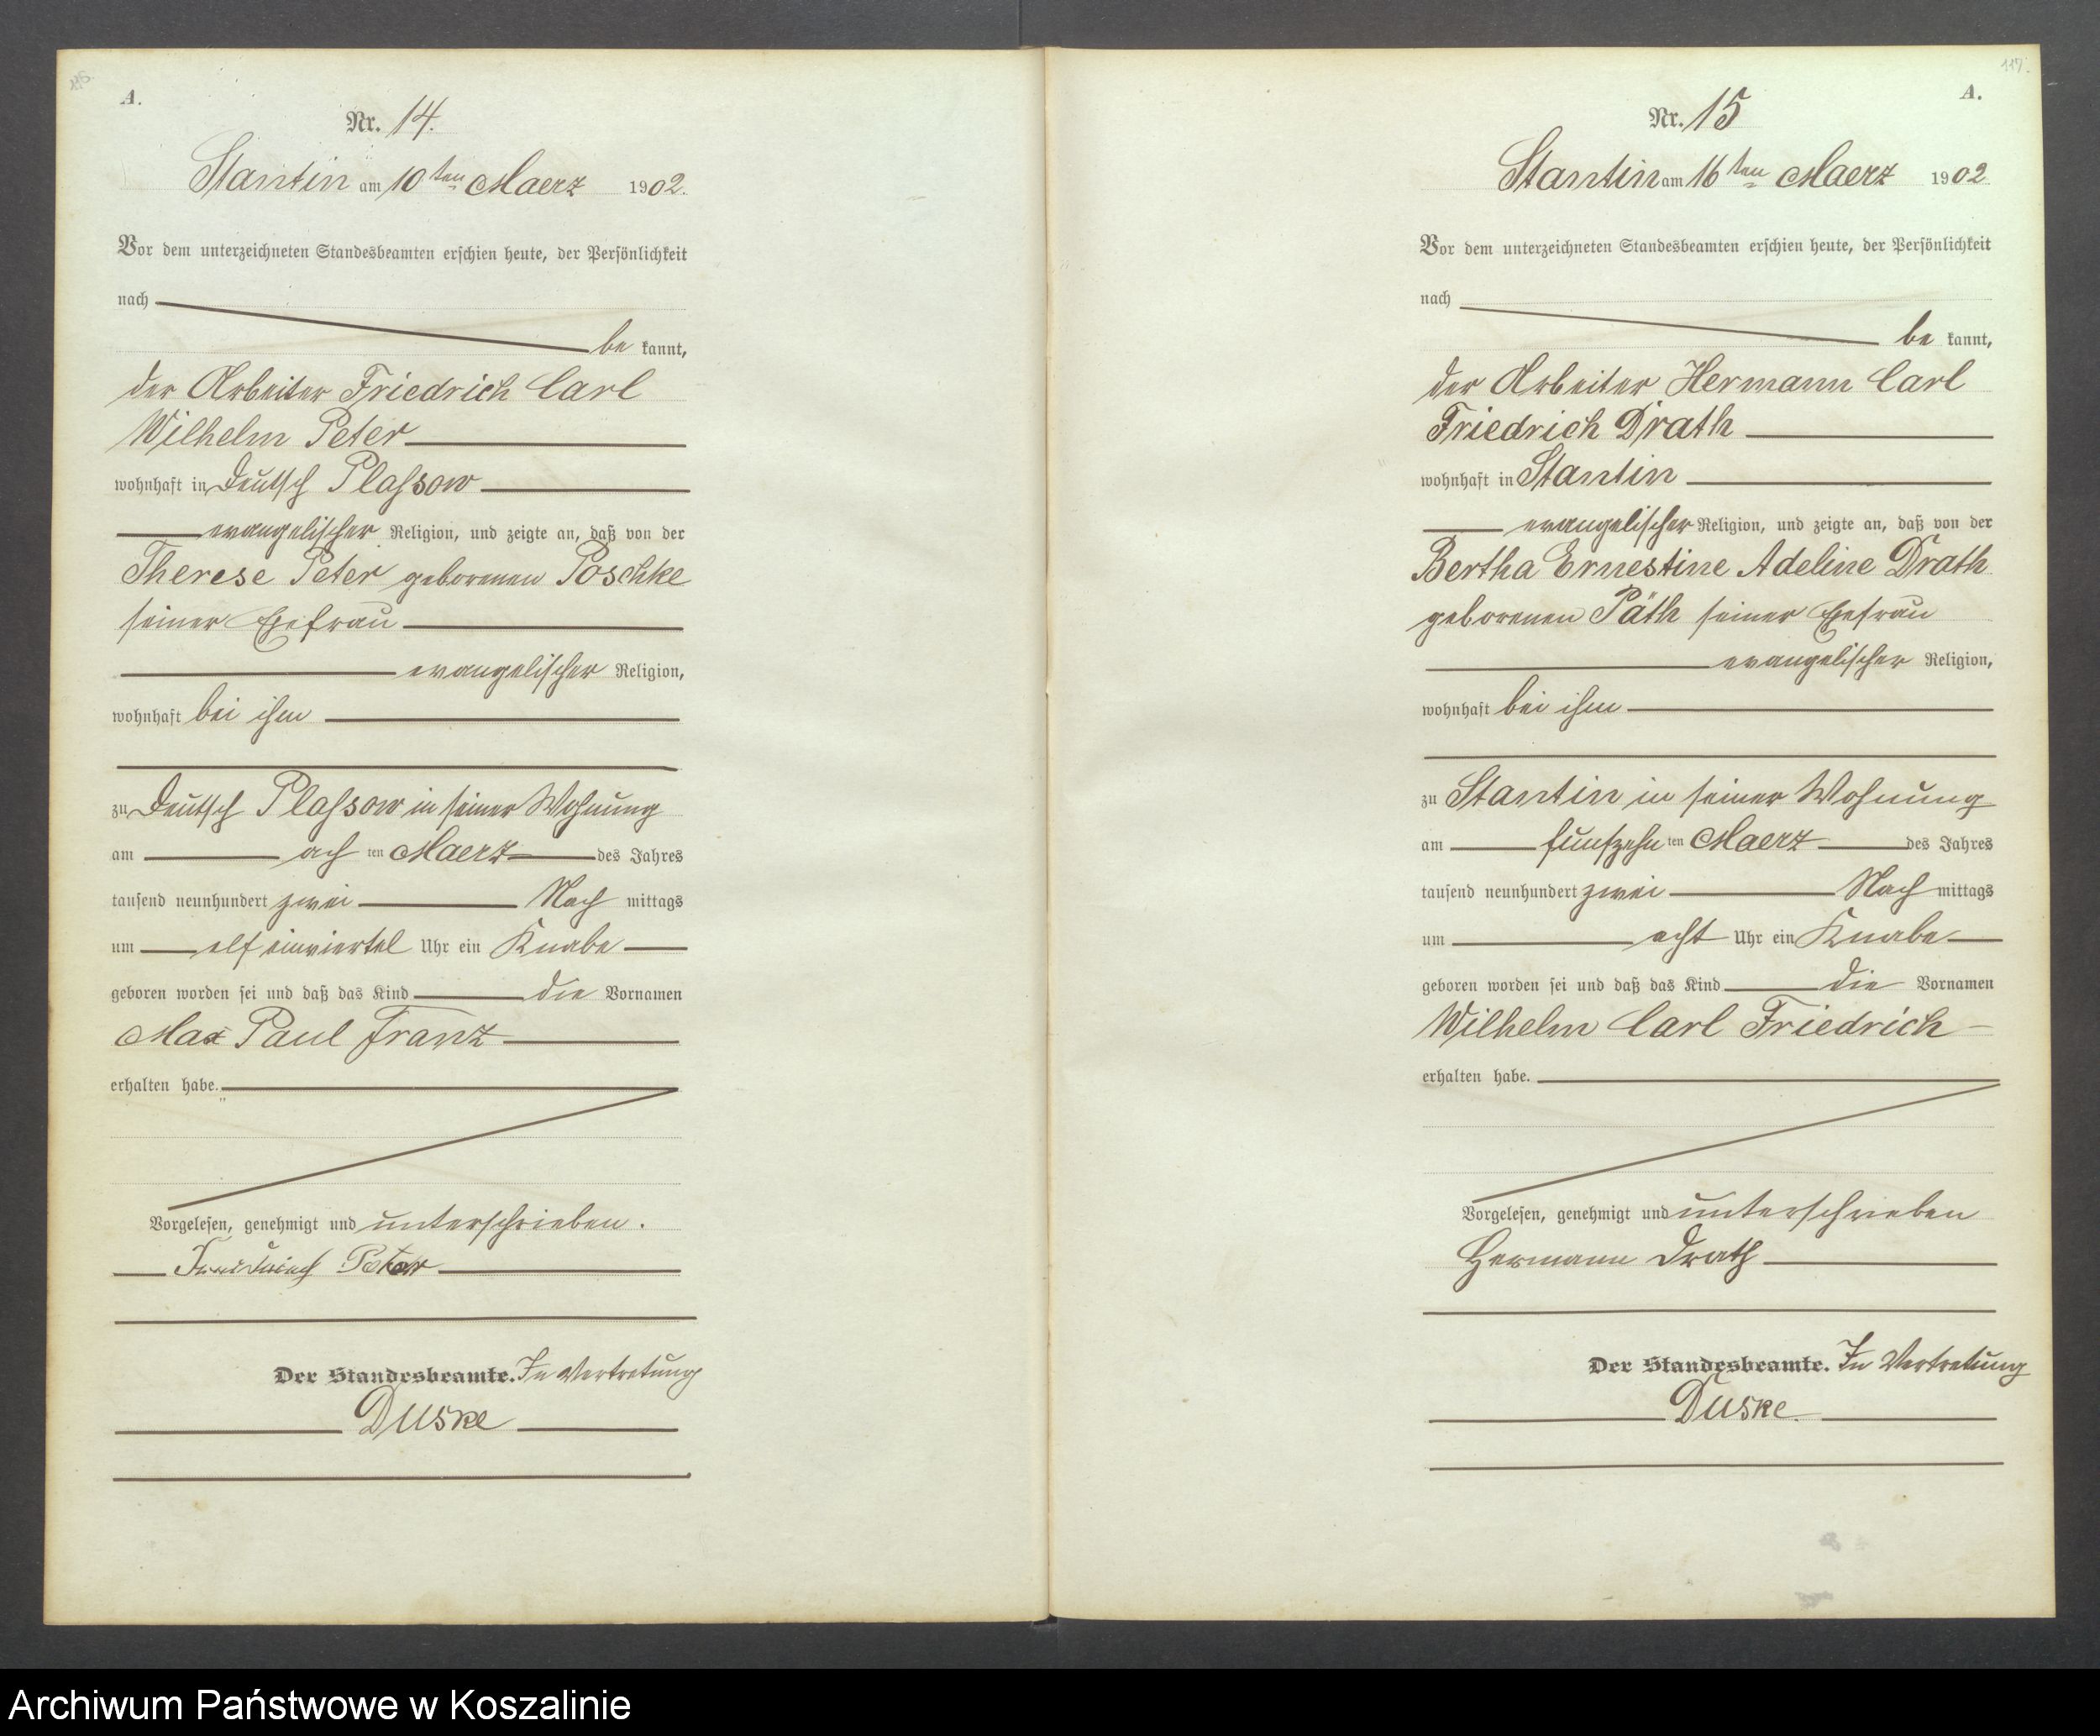 A.
Nr. 14.
Stantin am 10ten Maerz 1902.
Vor dem unterzeichneten Standesbeamten erschien heute, der Persönlichkeit
nach
be kannt,
der Arbeiter Friedrich Carl
Wilhelm Peter
wohnhaft in Deutsch Plassow
evangelischer Religion, und zeigte an, daß von der
Therese Peter geborenen Poschke
seiner Ehefrau
evangelischer Religion,
wohnhaft bei ihm
zu Deutsch Plassow in seiner Wohnung
am ach ten Maerz des Jahres
tausend neunhundert zwei Nach mittags
um elf einviertel Uhr ein Knabe
geboren worden sei und daß das Kind die Vornamen
Max Paul Franz
erhalten habe.
Vorgelesen, genehmigt und unterschrieben.
Friedrich Peter
Der Standesbeamte. In Vertretung
Duske
117.
A.
Nr. 15
Stantin am 16ten Maerz 1902
Vor dem unterzeichneten Standesbeamten erschien heute, der Persönlichkeit
nach
be kannt,
der Arbeiter Hermann Carl
Friedrich Drath
wohnhaft in Stantin
evangelischer Religion, und zeigte an, daß von der
Bertha Ernestine Adeline Drath
geborenen Päth seiner Ehefrau
evangelischer Religion,
wohnhaft bei ihm
zu Stantin in seiner Wohnung
am funfzehn ten Maerz des Jahres
tausend neunhundert zwei Nach mittags
um acht Uhr ein Knabe
geboren worden sei und daß das Kind die Vornamen
Wilhelm Carl Friedrich
erhalten habe.
Vorgelesen, genehmigt und unterschrieben
Hermann Drath
Der Standesbeamte. In Vertretung
Duske.
Archiwum Państwowe w Koszalinie